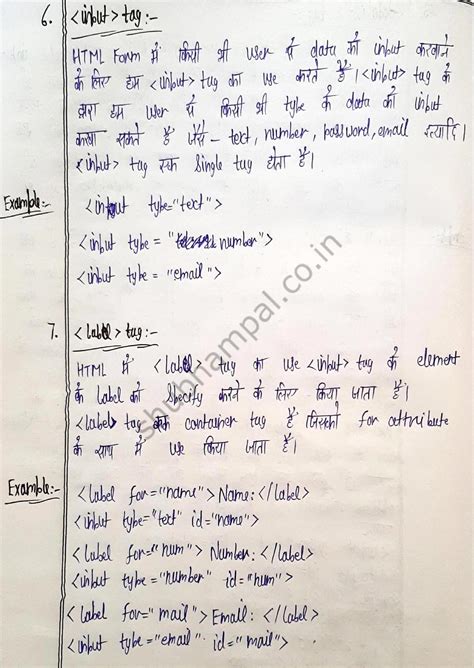 6. <input> tag:-
HTML Form में किसी भी user से data को input करवाने
के लिए हम <input> tag का use करते हैं। <input> tag के
द्वारा हम user से किसी भी type के data को input
करवा सकते हैं जैसे - text, number, password, email इत्यादि।
<input> tag एक single tag होता है।
Example:- <input type="text">
<input type = "number">
<input type = "email">
7. <label> tag:-
HTML में <label> tag का use <input> tag के element
के Label को specify करने के लिए किया जाता है।
<label> tag एक container tag है जिसको for attribute
के साथ में use किया जाता है।
Example:- <label for="name"> Name: </label>
<input type="text" id="name">
<label for="num"> Number: </label>
<input type = "number" id="num">
<label for="mail"> Email: </label>
<input type = "email" id="mail">
shubhampal.co.in